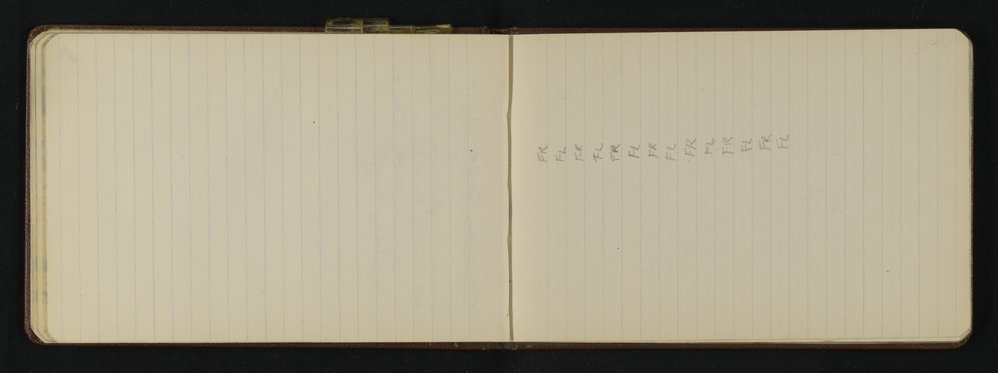 FR
FL
FR
FL
FR
FL
FR
FL
FR
FL
FR
FL
FR
FL